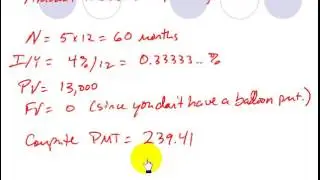 N = 5 x 12 = 60 months
I/Y = 4%/12 = 0.33333...%
PV = 13,000
FV = 0 (since you don't have a balloon pmt.)
Compute PMT = 239.41